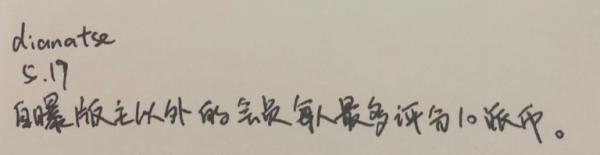 dianatse
5.19
自曝版主以外的会员每人最多评分10派币。